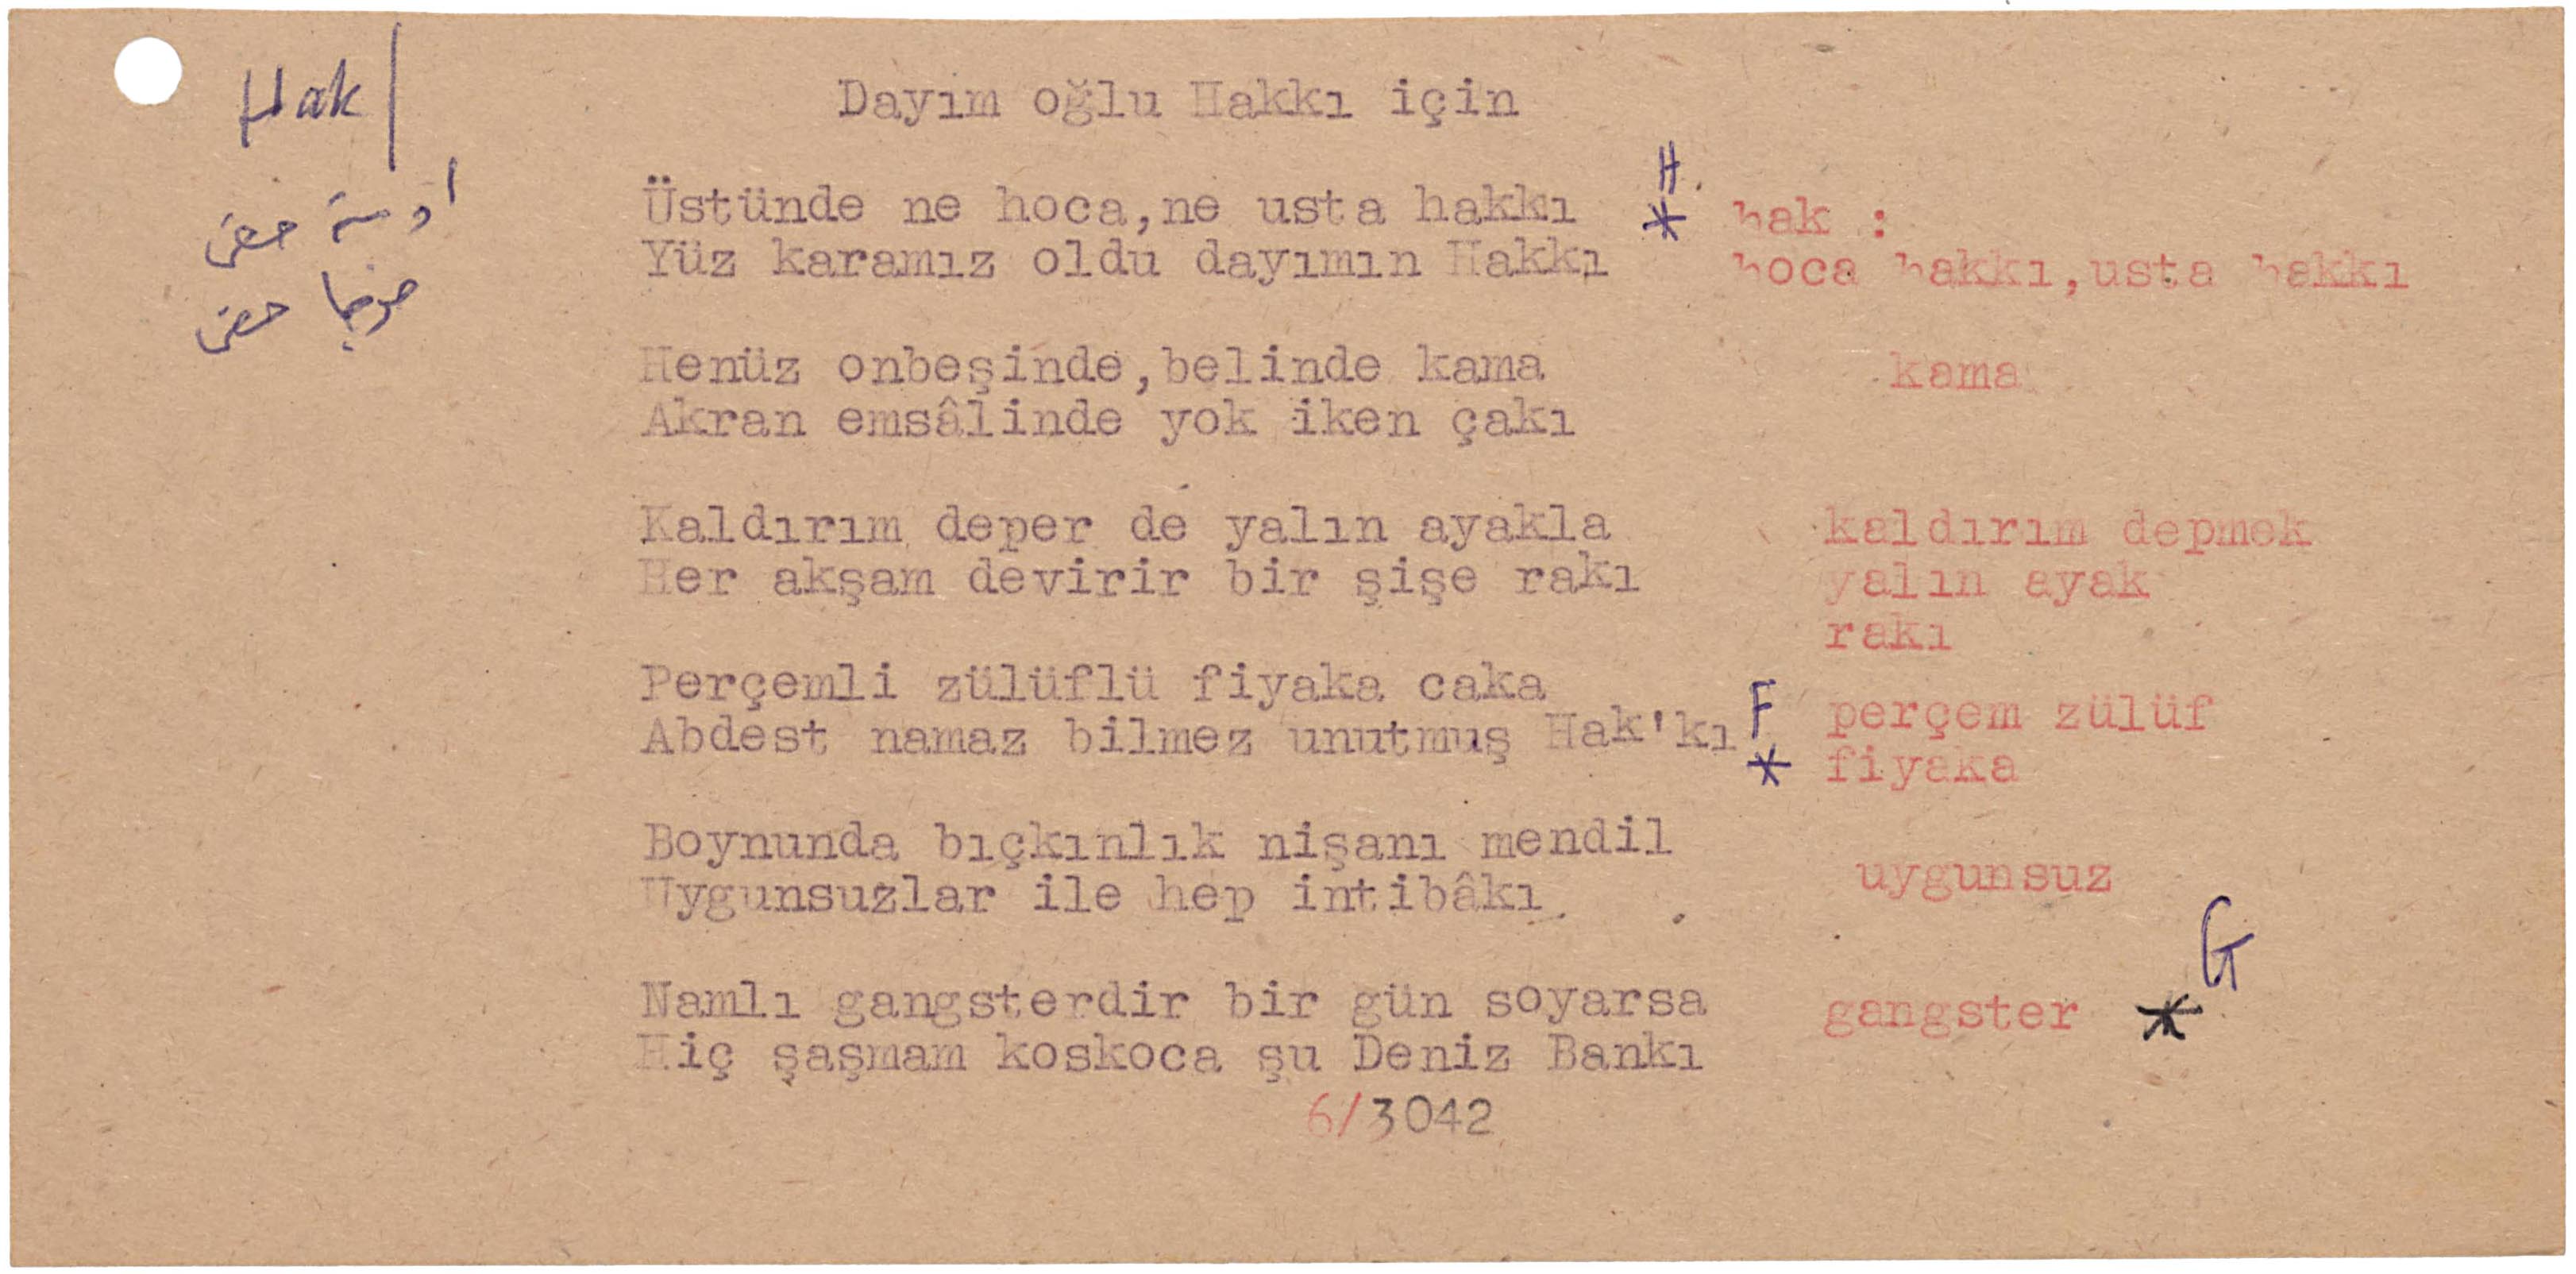 Hak
اوسته حقى
خوجا حقى
Dayım oğlu Hakkı için
Üstünde ne hoca,ne usta hakkı
Yüz karamız oldu dayımın Hakkı
H
* hak :
hoca hakkı,usta hakkı
Henüz onbeşinde,belinde kama
Akran emsâlinde yok iken çakı
kama
Kaldırım deper de yalın ayakla
Her akşam devirir bir şişe rakı
kaldırım depmek
yalın ayak
rakı
Perçemli zülüflü fiyaka caka
Abdest namaz bilmez unutmuş Hak'kı
F perçem zülüf
* fiyaka
Boynunda bıçkınlık nişanı mendil
Uygunsuzlar ile hep intibâkı
uygunsuz
Namlı gangsterdir bir gün soyarsa
Hiç şaşmam koskoca şu Deniz Bankı
G
gangster *
6/3042